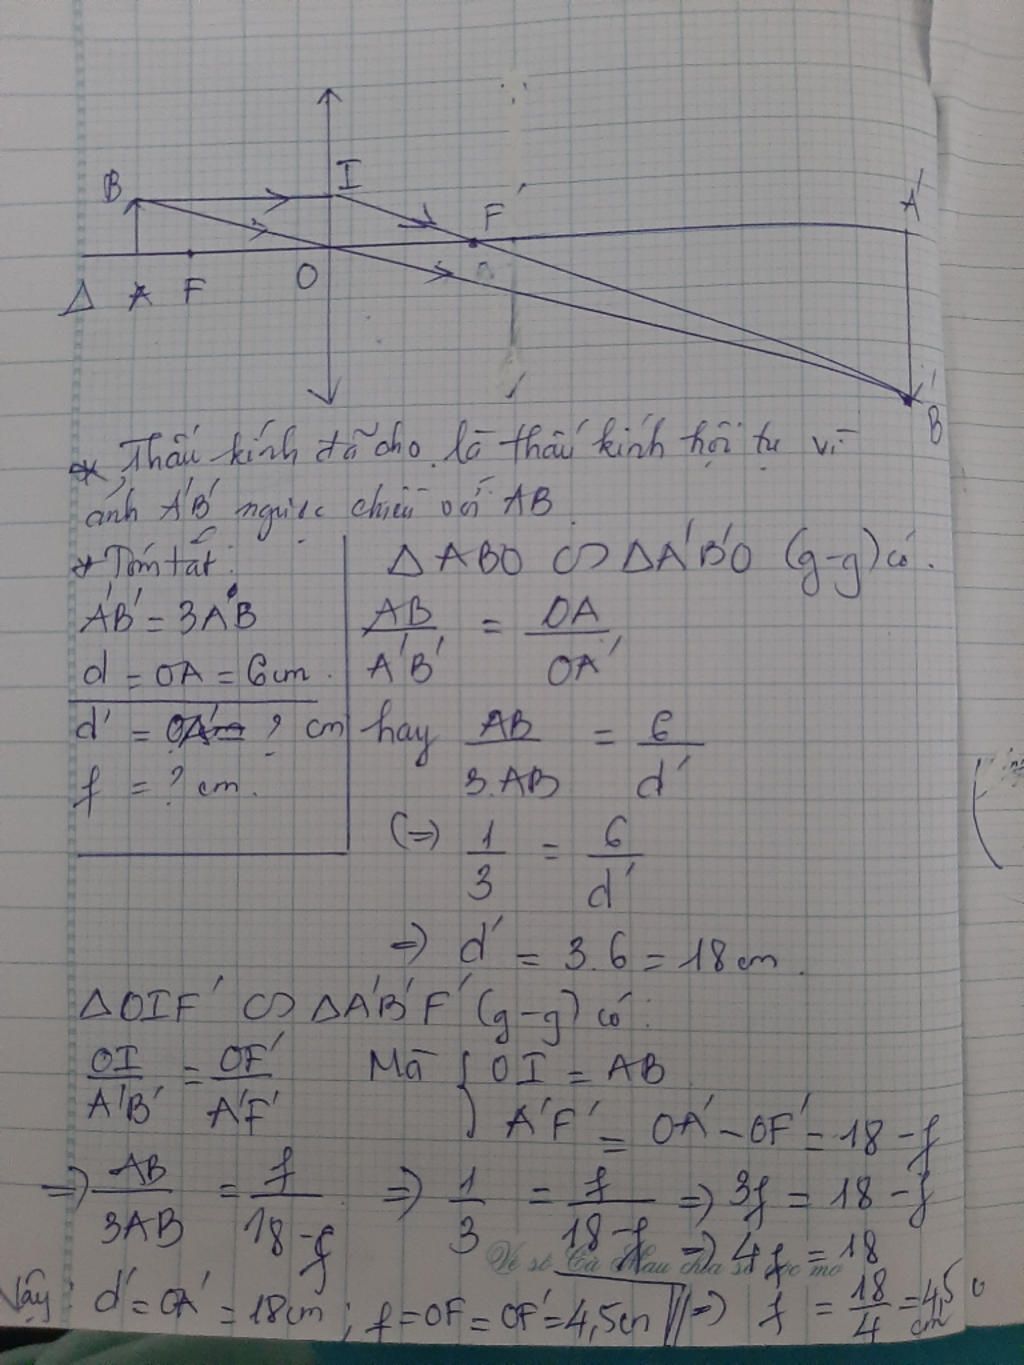 B I F' A'
Δ A F O B'
* Thấu kính đã cho là thấu kính hội tụ vì
ảnh A'B' ngược chiều với AB.
* Tóm tắt:
A'B' = 3AB
d = OA = 6cm.
d' = OA' = ? cm
f = ? cm.
ΔABO ∽ ΔA'B'O (g-g) có:
AB/A'B' = OA/OA'
hay AB/3.AB = 6/d'
(=) 1/3 = 6/d'
=) d' = 3.6 = 18cm.
ΔOIF' ∽ ΔA'B'F' (g-g) có:
OI/A'B' = OF'/A'F' Mà { OI = AB
A'F' = OA' - OF' = 18 - f
=) AB/3AB = f/18-f =) 1/3 = f/18-f =) 3f = 18 - f
=) 4f = 18
Vậy: d' = OA' = 18cm; f = OF = OF' = 4,5cm =) f = 18/4 = 4,5 cm